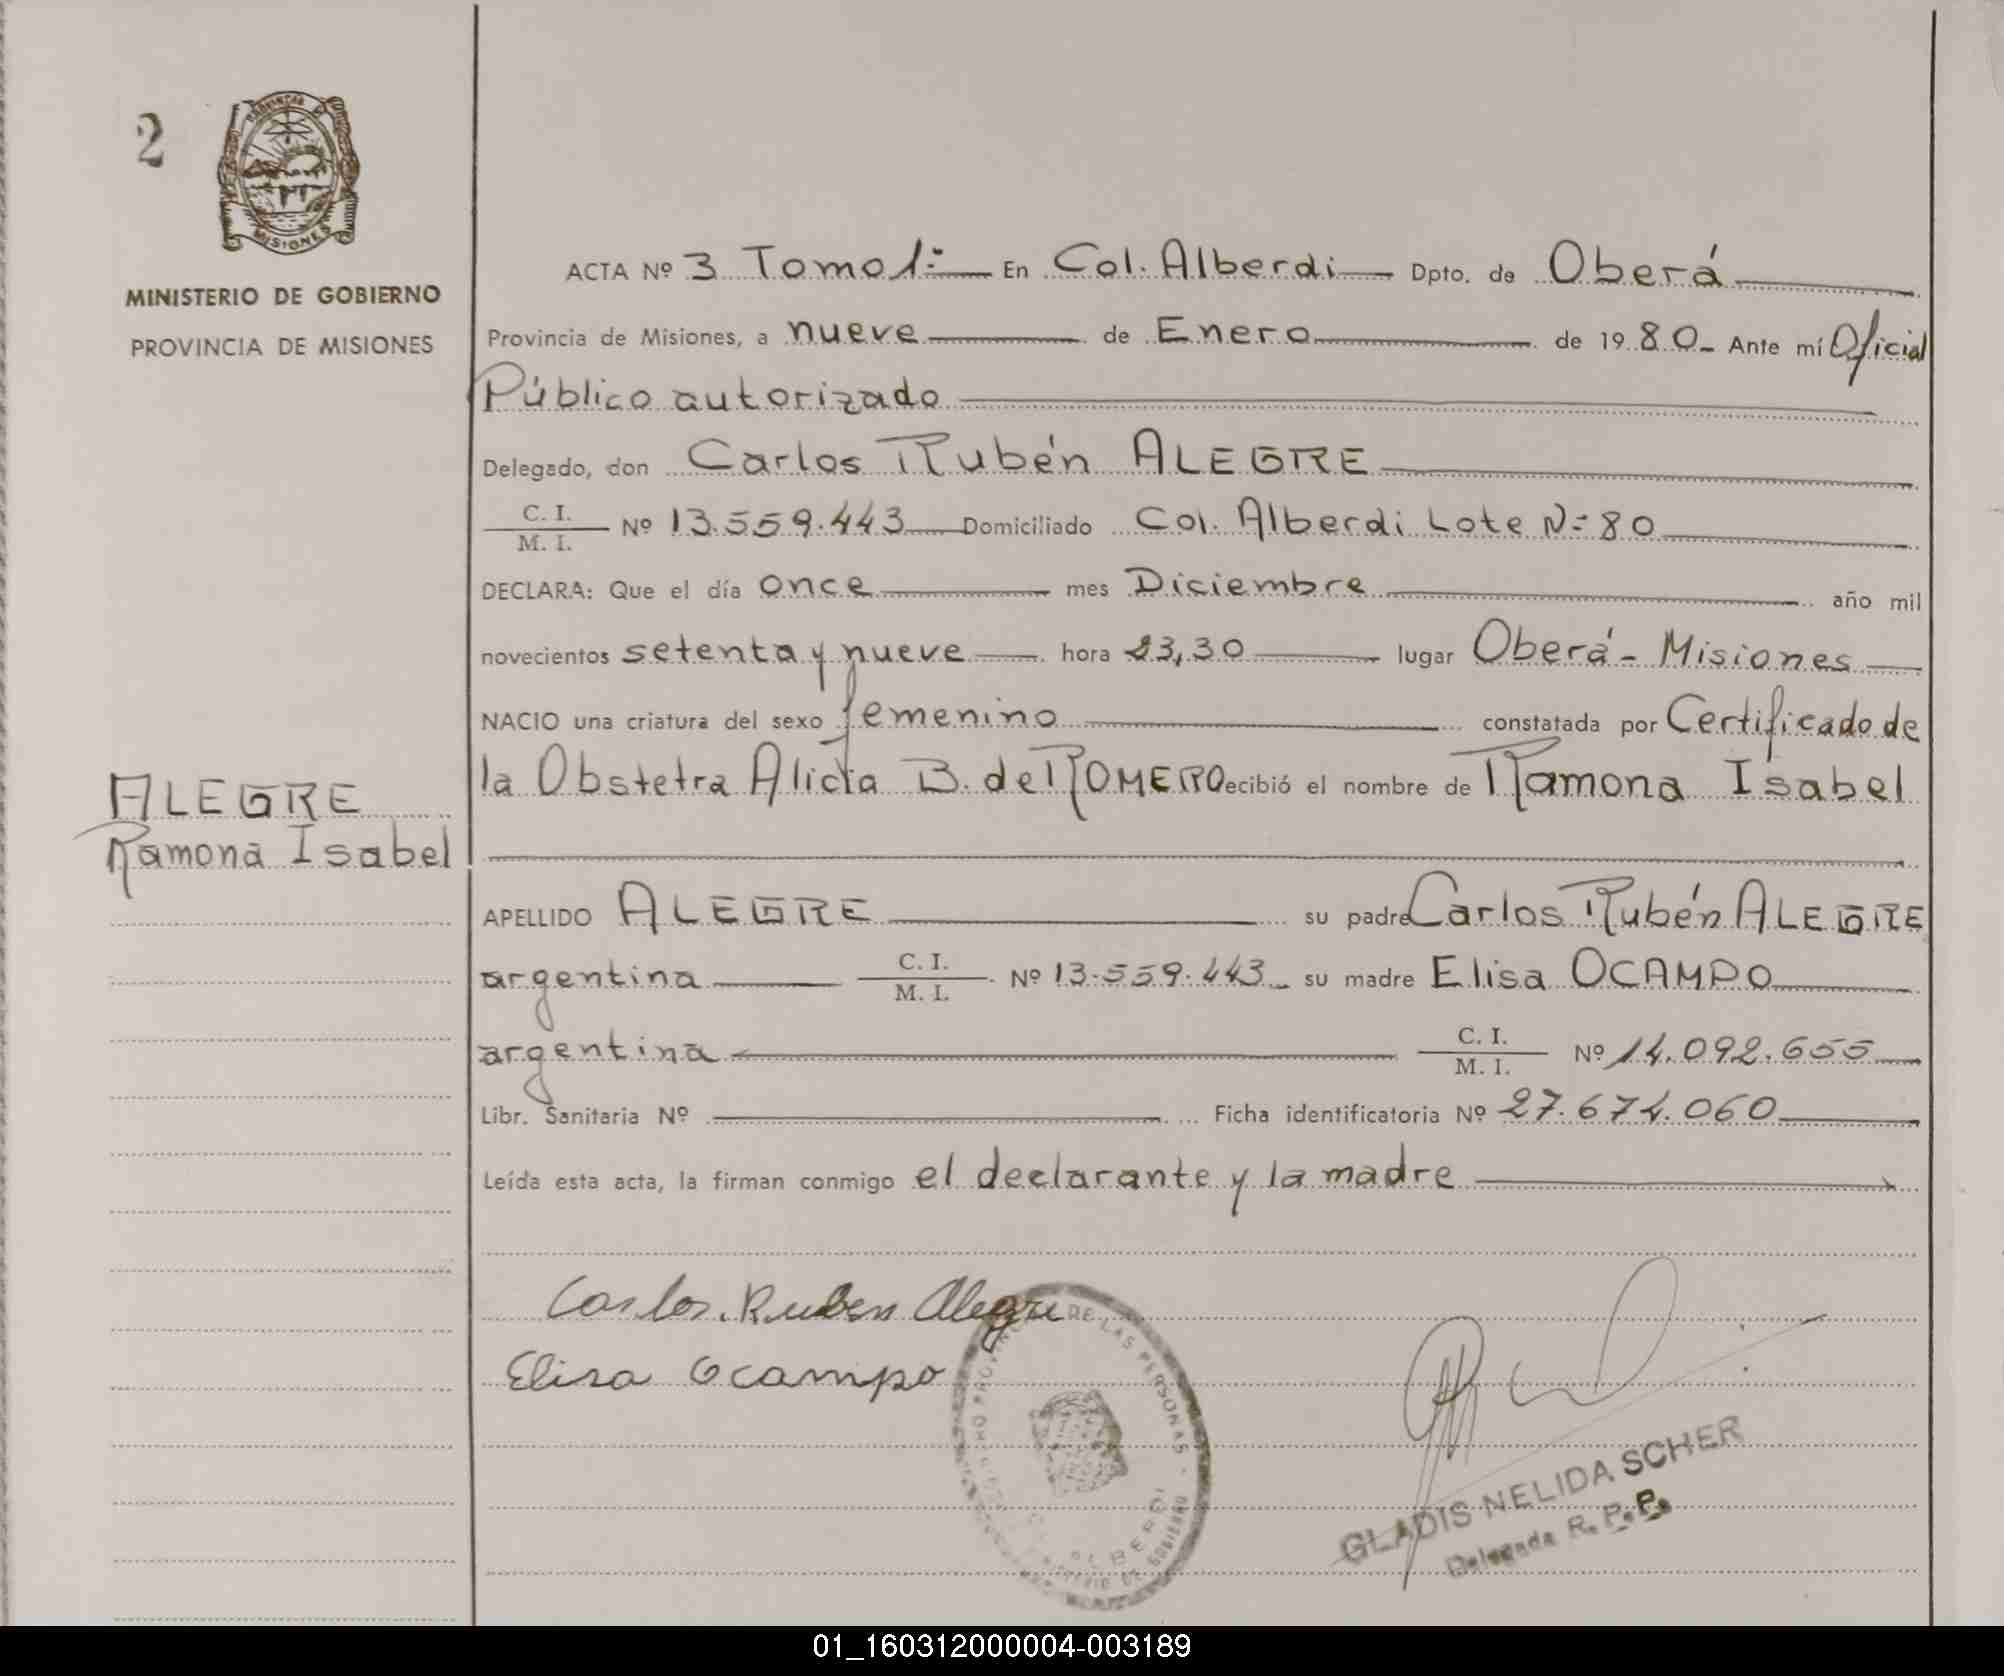 2
PROVINCIA DE
MISIONES
MINISTERIO DE GOBIERNO
PROVINCIA DE MISIONES
ACTA Nº 3 Tomo 1º En Col. Alberdi Dpto. de Oberá
Provincia de Misiones, a nueve de Enero de 1980 Ante mí Oficial
Público autorizado
Delegado, don Carlos Rubén ALEGRE
C. I.
M. I. Nº 13.559.443 Domiciliado Col. Alberdi Lote Nº 80
DECLARA: Que el día once mes Diciembre año mil
novecientos setenta y nueve hora 23,30 lugar Oberá - Misiones
NACIO una criatura del sexo femenino constatada por Certificado de
la Obstetra Alicia B. de ROMERO ecibió el nombre de Ramona Isabel
ALEGRE
Ramona Isabel
APELLIDO ALEGRE su padre Carlos Rubén ALEGRE
argentina C. I.
M. I. Nº 13.559.443 su madre Elisa OCAMPO
argentina C. I.
M. I. Nº 14.092.655
Libr. Sanitaria Nº Ficha identificatoria Nº 27.674.060
Leída esta acta, la firman conmigo el declarante y la madre
Carlos Ruben Alegre
Elisa Ocampo
DE LAS PERSONAS
ALBERDI
DE GOBIERNO
GLADIS NELIDA SCHER
Delegada R. P. P.
01_160312000004-003189